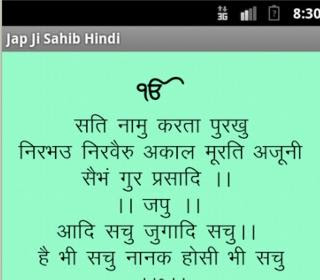 3G 8:30
Jap Ji Sahib Hindi
ੴ
सति नामु करता पुरखु
निरभउ निरवैरु अकाल मूरति अजूनी
सैभं गुर प्रसादि ।।
।। जपु ।।
आदि सचु जुगादि सचु।।
है भी सचु नानक होसी भी सचु